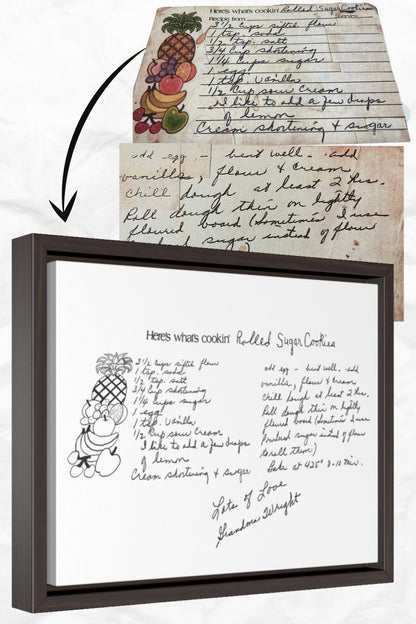 Here's what's cookin' Rolled Sugar Cookies
Recipe from serves
3 1/2 Cups sifted flour
1 tsp. soda
1/2 tsp. salt
3/4 Cup shortening
1 1/4 Cups sugar
1 egg
1 tsp. vanilla
1/2 Cup sour cream
I'd like to add a few drops
of lemon
Cream shortening & sugar
add egg - beat well - add
vanilla, flour & cream
Chill dough at least 2 hrs.
Roll dough thin on lightly
floured board (Sometimes I use
sugar instead of flour
Here's what's cookin' Rolled Sugar Cookies
3 1/2 Cups sifted flour
1 tsp. soda
1/2 tsp. salt
3/4 Cup shortening
1 1/4 Cups sugar
1 egg
1 tsp. vanilla
1/2 Cup sour cream
I like to add a few drops
of lemon
Cream shortening & sugar
add egg - beat well - add
vanilla, flour & cream
Chill dough at least 2 hrs.
Roll dough thin on lightly
floured board (Sometimes I use
Powdered sugar instead of flour
to roll them)
Bake at 425° 8-10 min.
Lots of Love
Grandma Wright